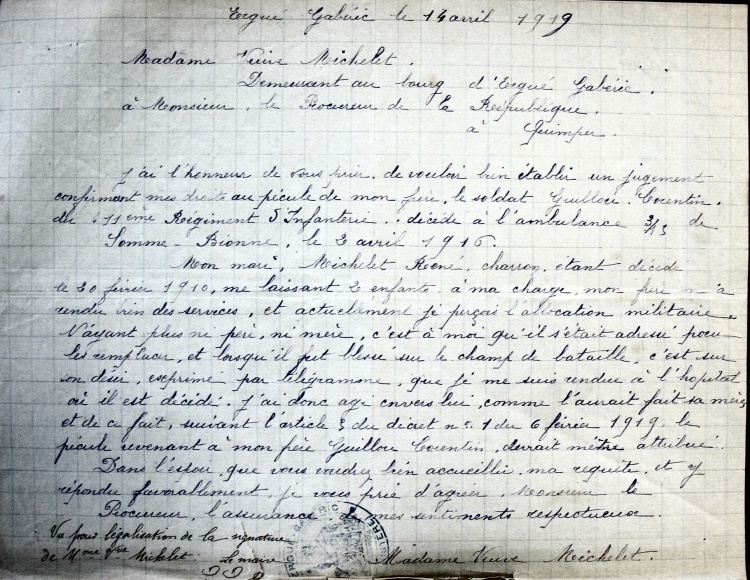 Ergué Gabéric le 14 avril 1919
Madame Veuve Michelet.
Demeurant au bourg d'Ergué Gabéric.
à Monsieur, le Procureur de la République.
à Quimper.
J'ai l'honneur de vous prier, de vouloir bien établir un jugement
confirmant mes droits au pécule de mon frère, le soldat Guillou, Corentin,
du 611eme Régiment d'Infanterie, décédé à l'ambulance 3/13 de
Somme-Bionne, le 2 avril 1916.
Mon mari, Michelet René, charron, étant décédé
le 20 février 1910, me laissant 2 enfants à ma charge, mon frère m'a
rendu bien des services, et actuelement je perçois l'allocation militaire.
N'ayant plus ni père, ni mère, c'est à moi qu'il s'était adressé pour
les remplacer, et lorsqu'il fut blessé sur le champ de bataille, c'est sur
son désir, exprimé par télégramme, que je me suis rendue à l'hopital
où il est décédé. J'ai donc agé envers lui, comme l'aurait fait sa mère,
et de ce fait, suivant l'article 3 du décret n° 1 du 6 février 1919, le
pécule revenant à mon frère Guillou Corentin, devrait m'être attribué.
Dans l'espoir, que vous voudrez bien accueillir, ma requête, et y
répondre favorablement, je vous prie d'agréer, Monsieur le
Procureur, l'assurance de mes sentiments respectueux.
Vu pour légalisation de la signature
de Mme Vve Michelet. Le maire
Madame Veuve Michelet.